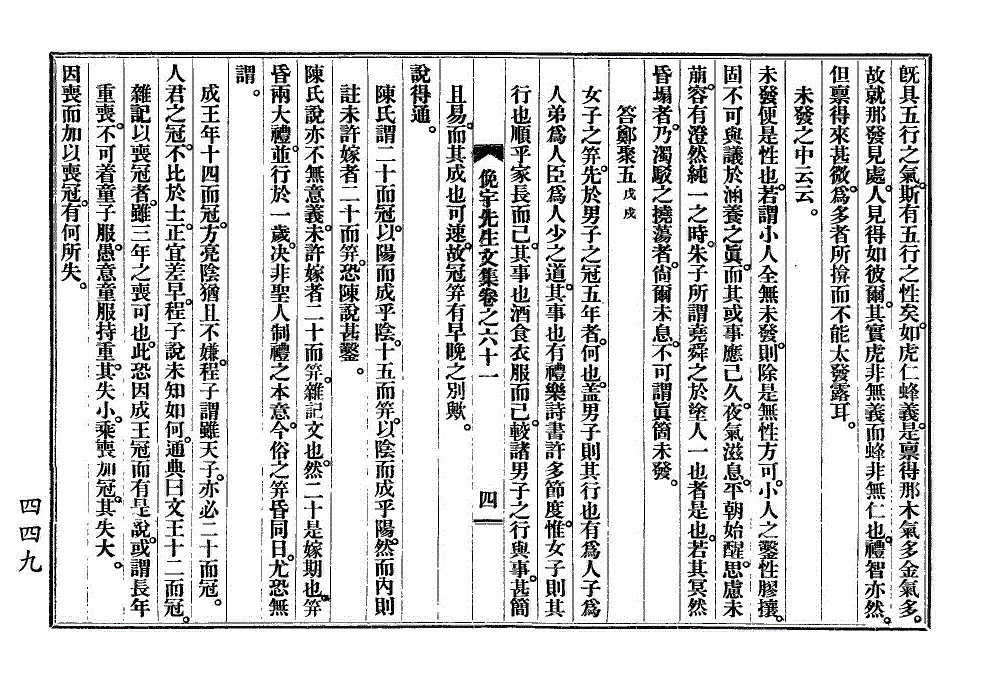 既具五行之氣。斯有五行之性矣。如虎仁蜂義。是稟得那木氣多金氣多。
故就那發見處。人見得如彼爾。其實虎非無義而蜂非無仁也。禮智亦然。
但稟得來甚微。爲多者所揜而不能太發露耳。
未發之中云云。
未發便是性也。若謂小人全無未發。則除是無性方可。小人之鑿性膠擾。
固不可與議於涵養之眞。而其或事應已久。夜氣滋息。平朝始醒。思慮未
萠。容有澄然純一之時。朱子所謂堯舜之於塗人一也者是也。若其冥然
昏塌者。乃濁駁之撓蕩者。尙爾未息。不可謂眞箇未發。
答鄭聚五 戊戌
女子之筓。先於男子之冠五年者。何也。盖男子則其行也有爲人子爲
人弟爲人臣爲人少之道。其事也有禮樂詩書許多節度。惟女子則其
行也順乎家長而已。其事也酒食衣服而已。較諸男子之行與事甚簡
俛宇先生文集卷之六十一 四
且易。而其成也可速。故冠筓有早晩之別歟。
說得通。
陳氏謂二十而冠。以陽而成乎陰。十五而筓。以陰而成乎陽。然而內則
註未許嫁者二十而筓。恐陳說甚鑿。
陳氏說亦不無意義。未許嫁者二十而筓。雜記文也。然二十是嫁期也。筓
昏兩大禮。並行於一歲。决非聖人制禮之本意。今俗之筓昏同日。尤恐無
謂。
成王年十四而冠。方亮陰猶且不嫌。程子謂雖天子。亦必二十而冠。
人君之冠。不比於士。正宜差早。程子說未知如何。通典曰文王十二而冠。
雜記以喪冠者。雖三年之喪可也。此恐因成王冠而有是說。或謂長年
重喪。不可着童子服。愚意童服持重。其失小。乘喪加冠。其失大。
因喪而加以喪冠。有何所失。
四四九